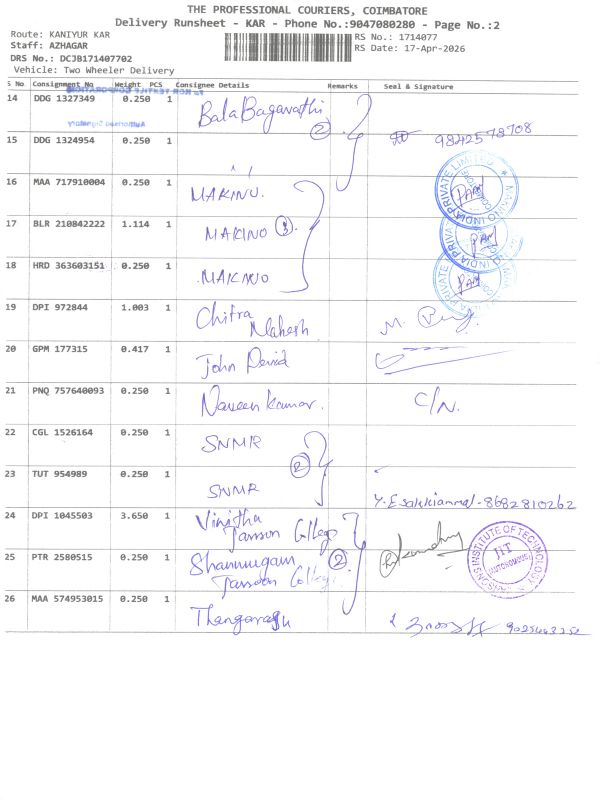 THE PROFESSIONAL COURIERS, COIMBATORE
Delivery Runsheet - KAR - Phone No.:9047080280 - Page No.:2
Route: KANIYUR KAR
Staff: AZHAGAR
DRS No.: DCJB171407702
Vehicle: Two Wheeler Delivery
RS No.: 1714077
RS Date: 17-Apr-2026
S No Consignment No Weight PCS Consignee Details Remarks Seal & Signature
14 DDG 1327349 0.250 1 Bala Bagavathi 2
15 DDG 1324954 0.250 1 9842578708
16 MAA 717910004 0.250 1 MAKINO
17 BLR 210842222 1.114 1 MAKINO 3
18 HRD 363603151 0.250 1 MAKINO
MAKINO INDIA PRIVATE LIMITED
19 DPI 972844 1.003 1 Chitra Mahesh M.
20 GPM 177315 0.417 1 John David
21 PNQ 757640093 0.250 1 Naveen Kumar. C/N.
22 CGL 1526164 0.250 1 SNMR 2
23 TUT 954989 0.250 1 SNMR Y. Esakkiammal - 8682810262
24 DPI 1045503 3.650 1 Vinitha Jansson College
25 PTR 2580515 0.250 1 Shanmugam Jansson College 2
INSTITUTE OF TECHNOLOGY
JIT
(AUTONOMOUS)
26 MAA 574953015 0.250 1 Thangaraju